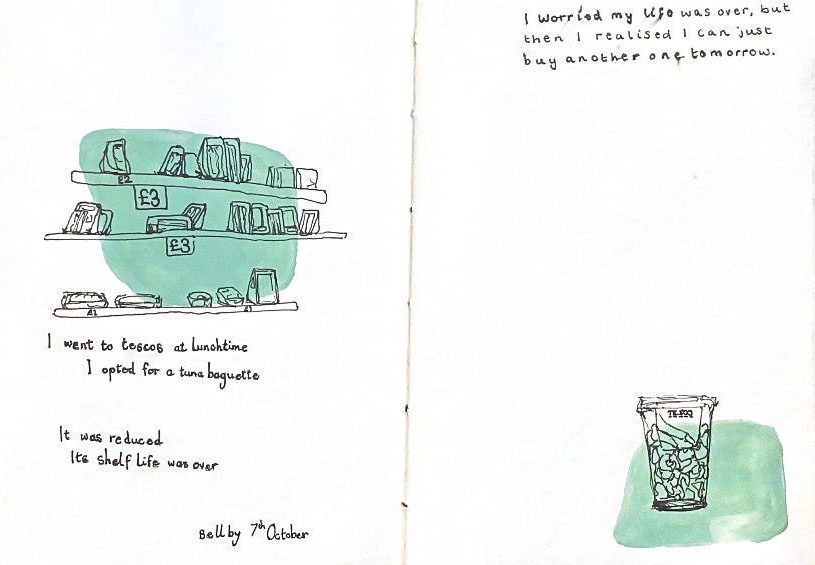 £2
£3
£3
£1
£1
I went to tescos at lunchtime
I opted for a tuna baguette
It was reduced
Its shelf life was over
Sell by 7th October
I worried my life was over, but
then I realised I can just
buy another one tomorrow.
TESCO